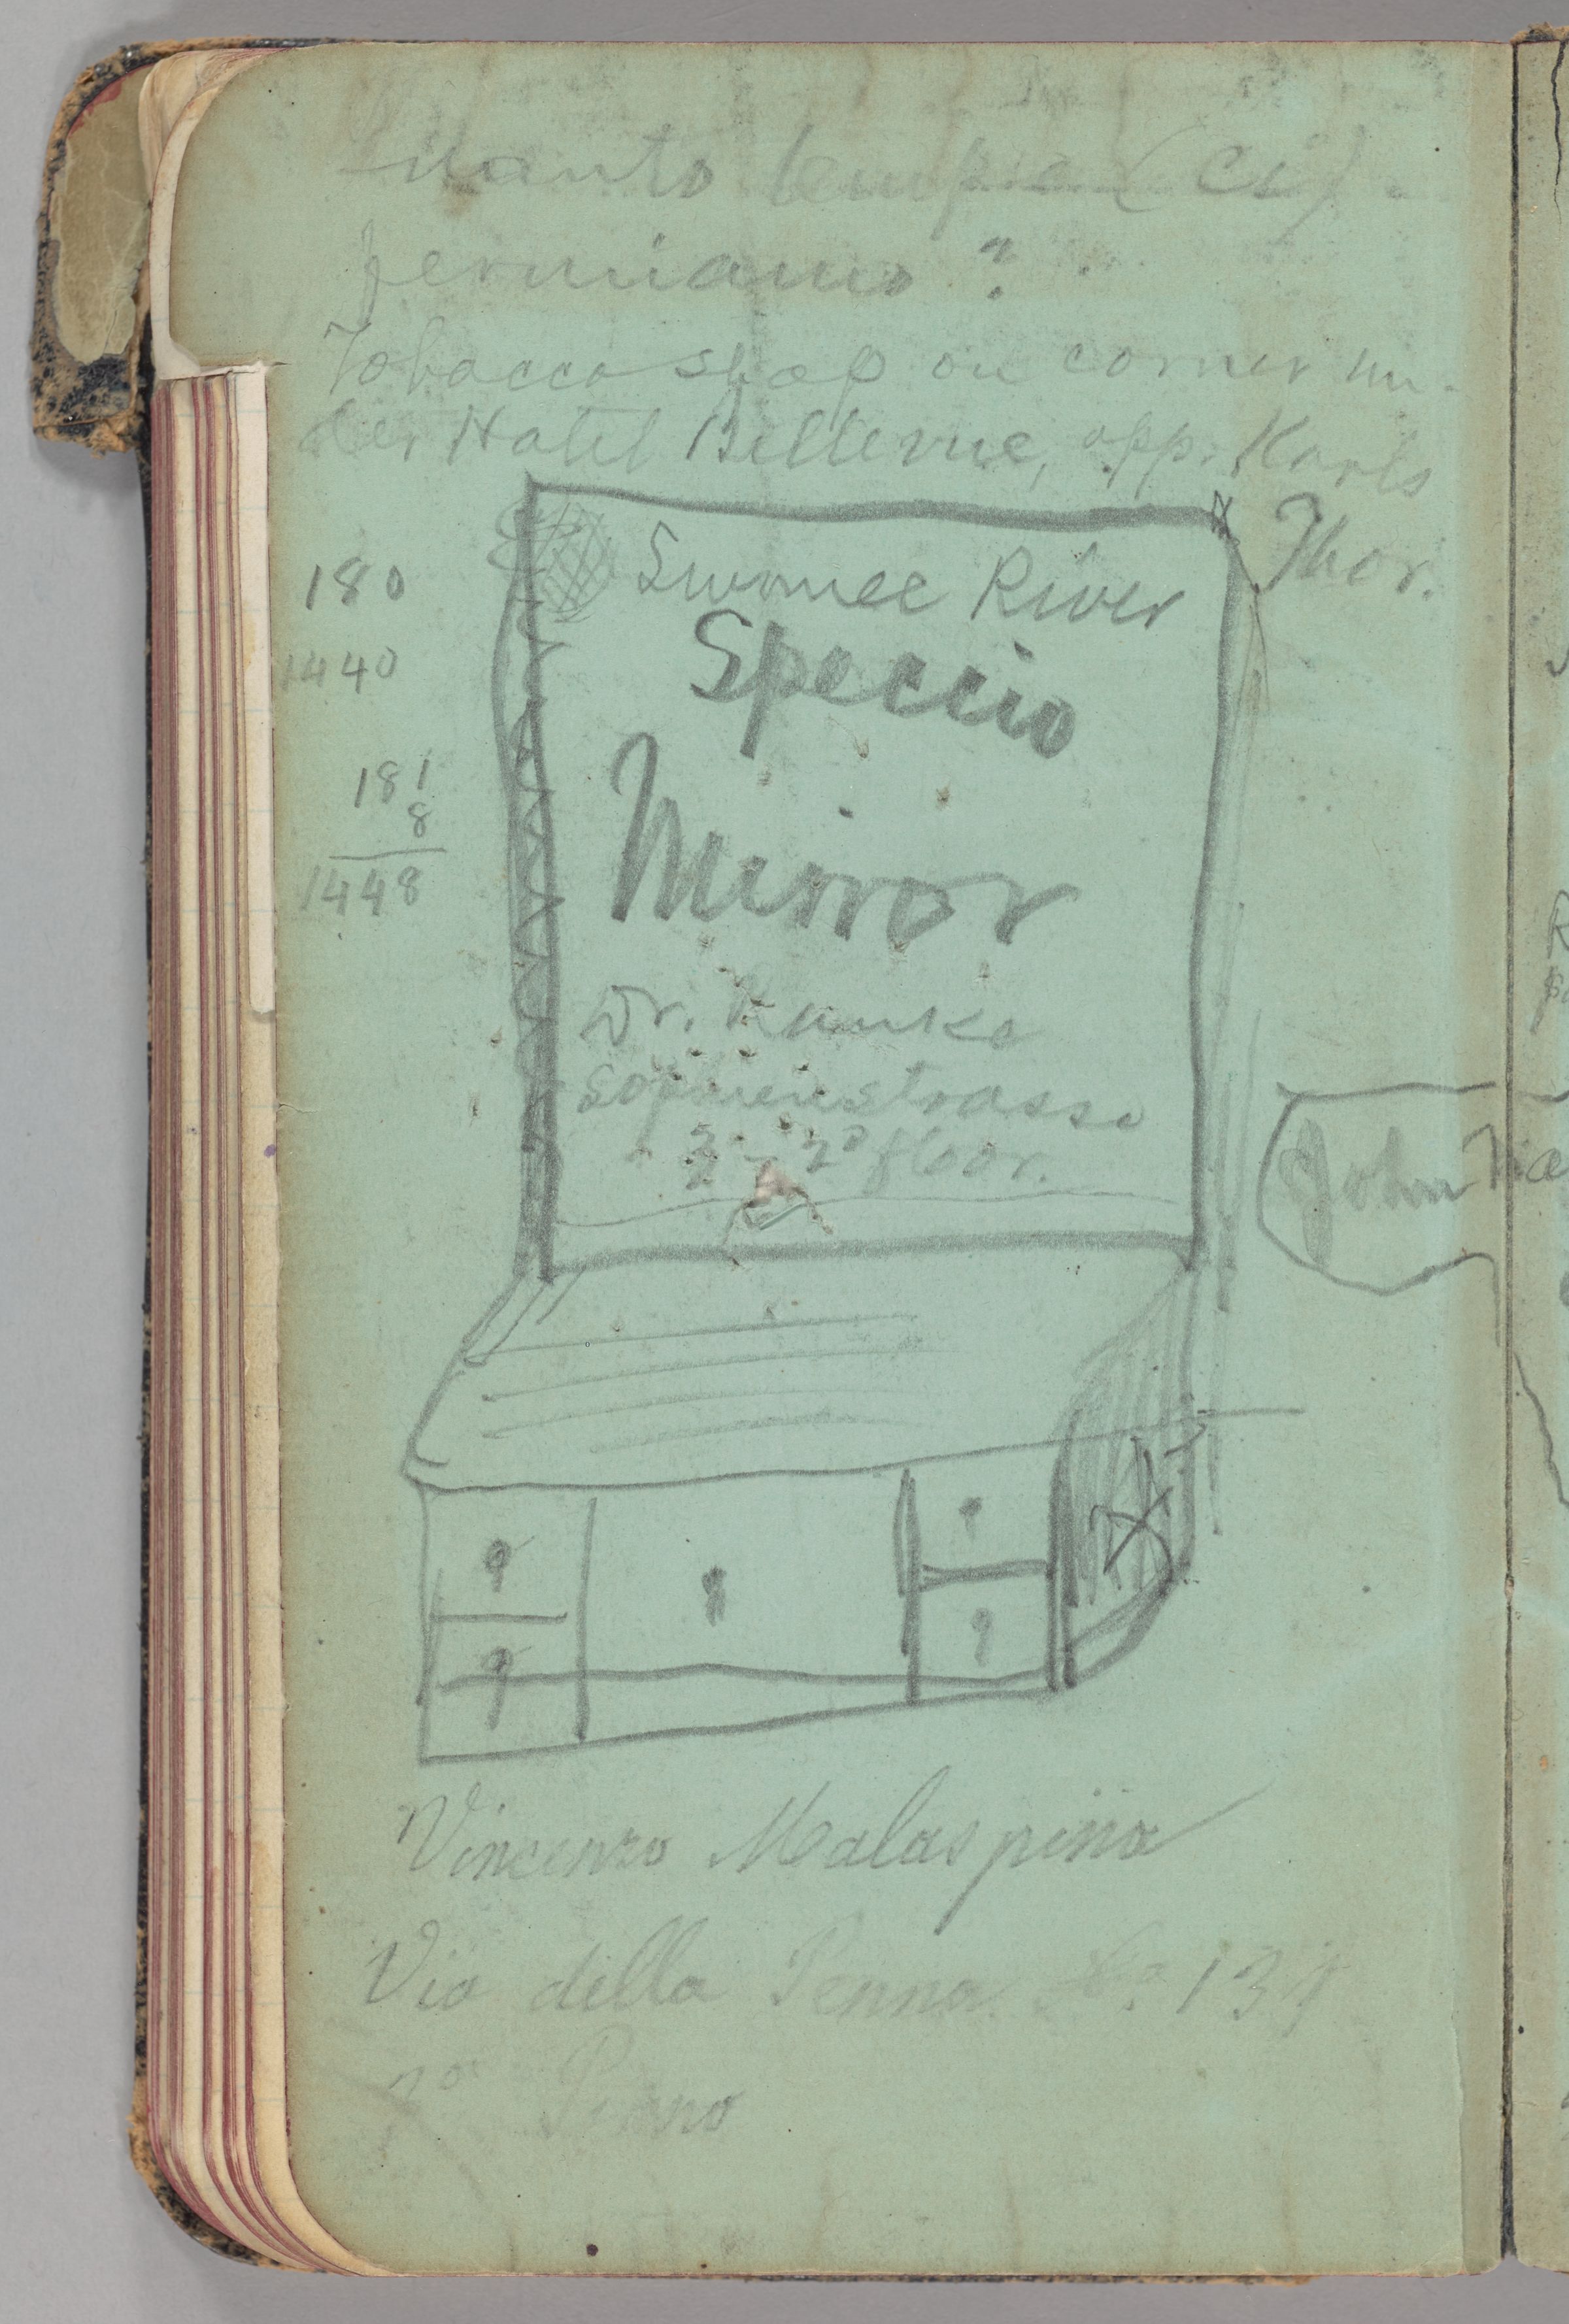 quanto tempo (ci)
fermiamo?
Tobacco shop on corner un-
der Hotel Bellevue, opp. Karls
Thor.
180
1440
181
8
1448
Suwnee River
Speccio
Mirror
Dr. Ranke
Sophienstrasse
3 - 2º floor.
John
Vincenzo Malaspina
Via della Penna No. 139
Piano